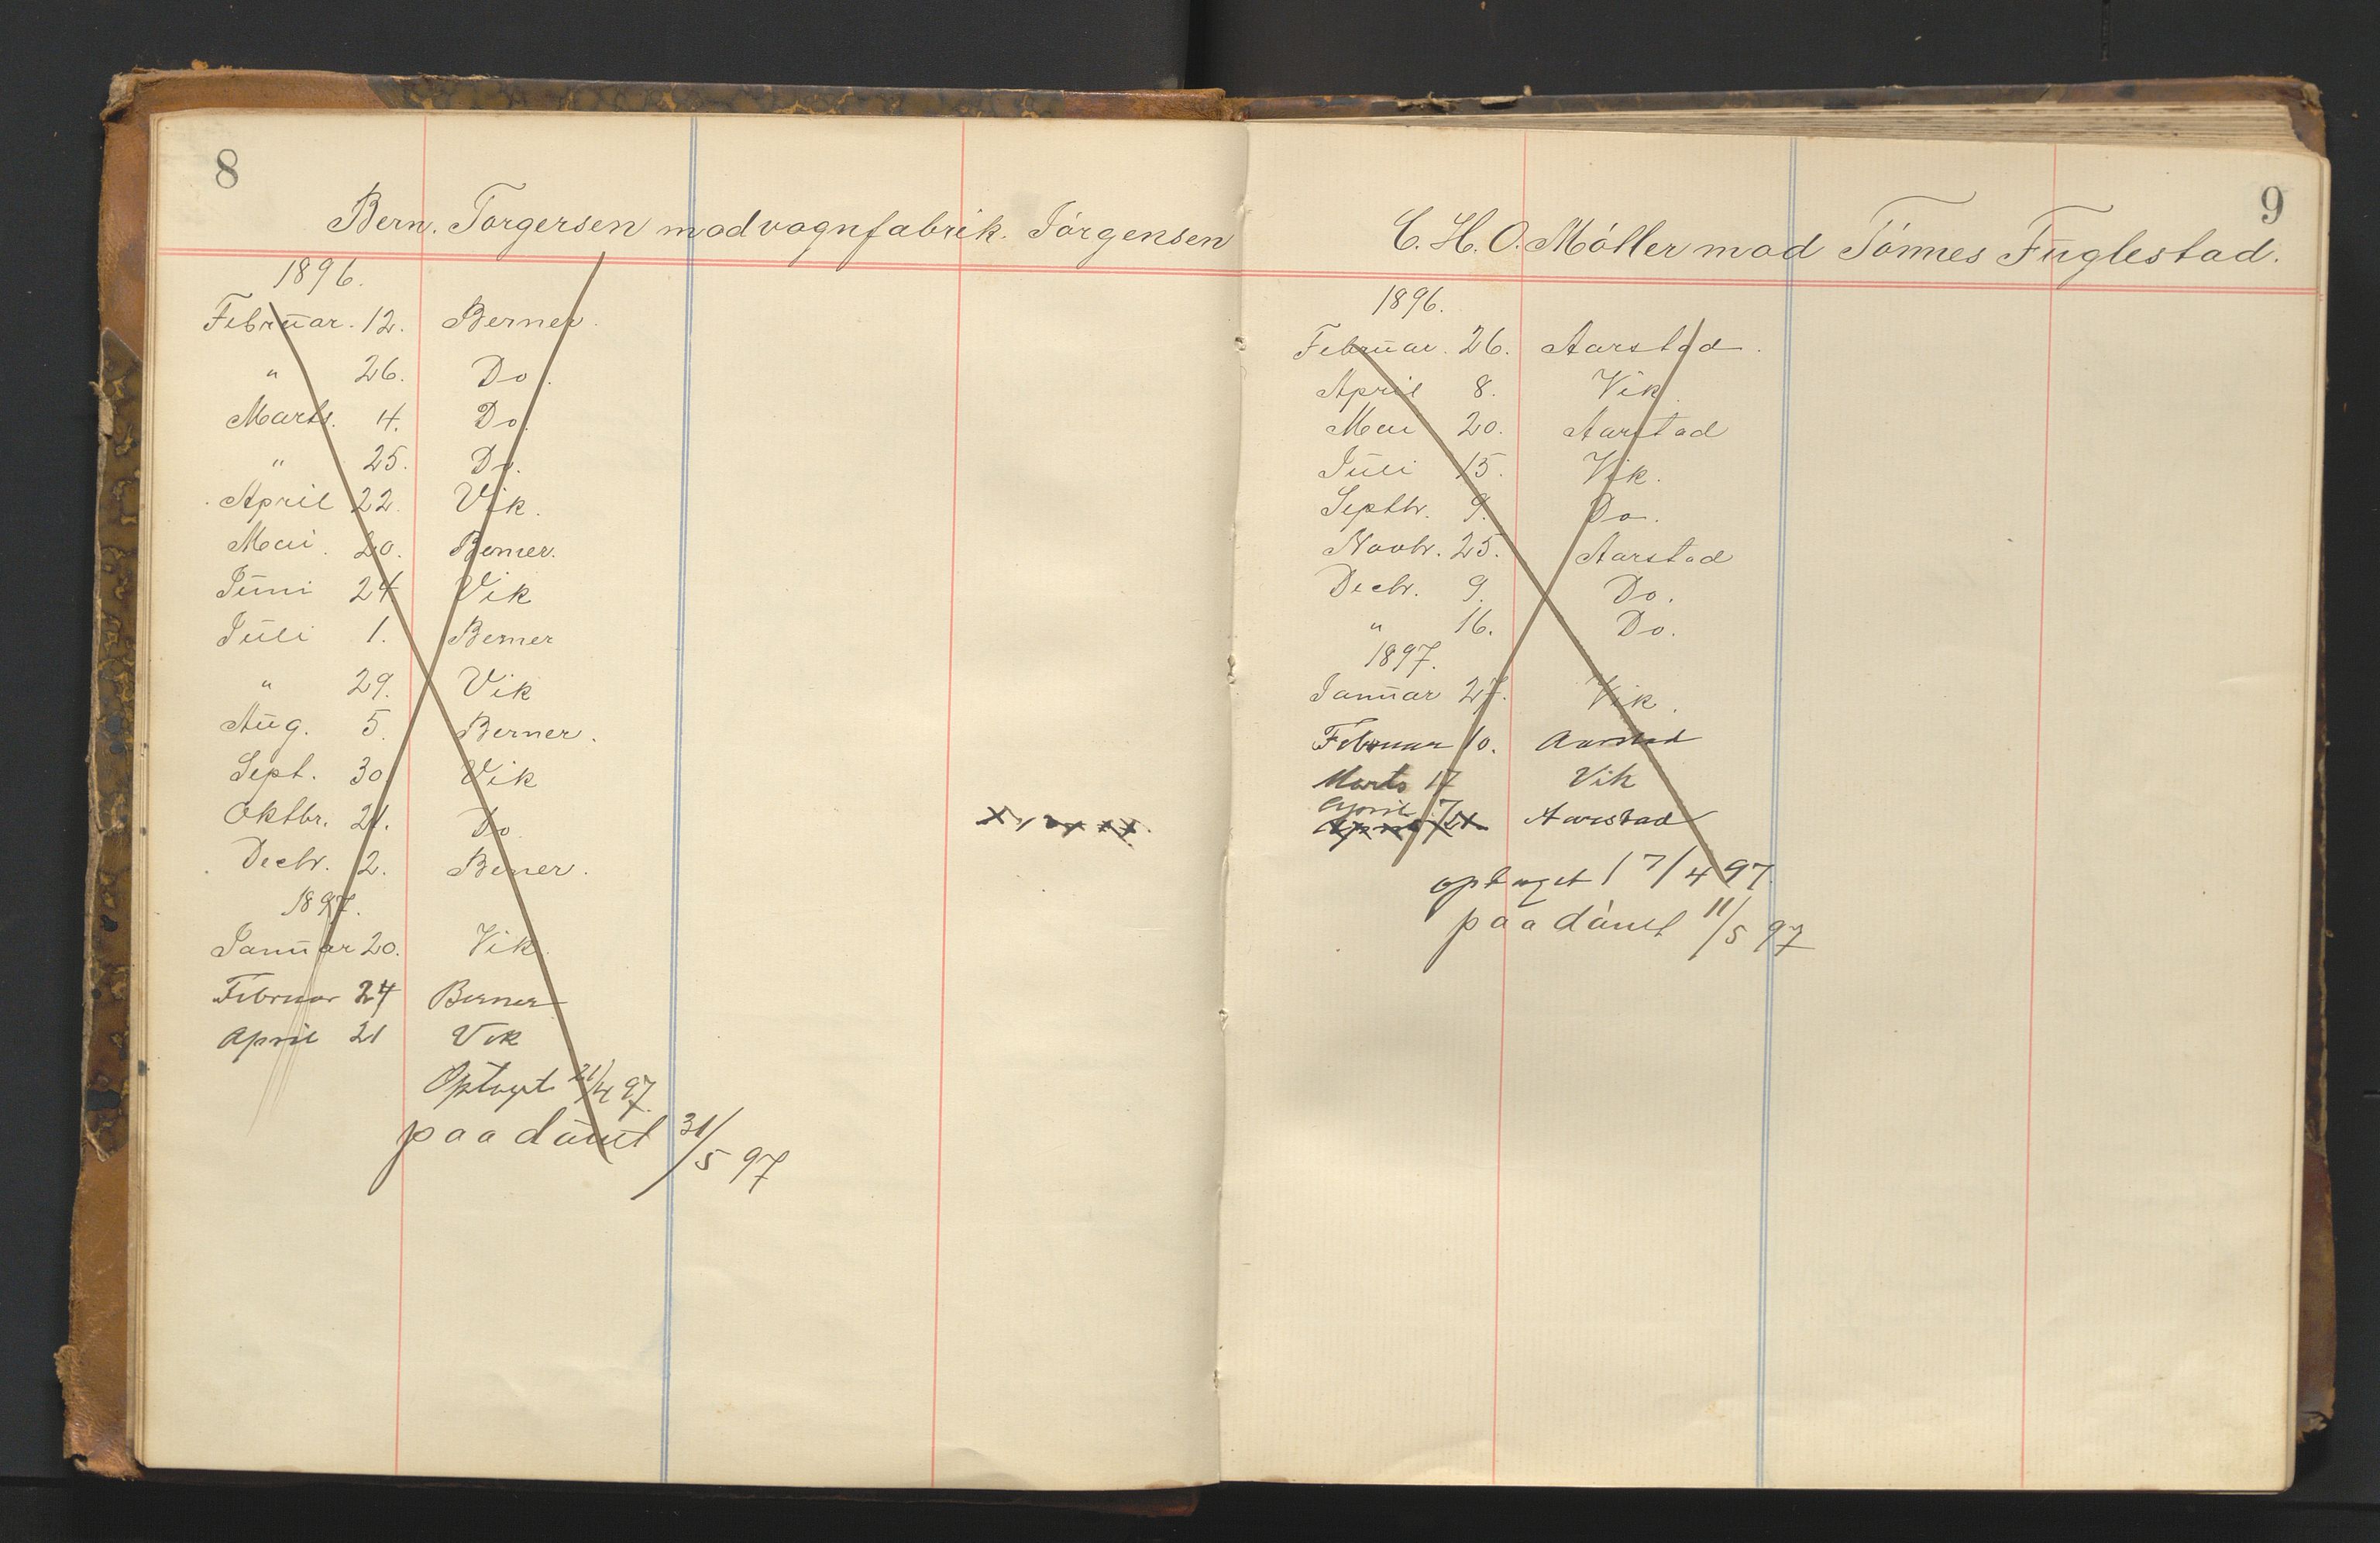 8
Bern. Torgersen mod vognfabrik. Jörgensen
1896.
Februar. 12. Berner.
" 26. Do.
Marts. 4. Do.
" 25. Do.
April 22. Vik.
Mai. 20. Berner.
Juni 24 Vik
Juli 1. Berner
" 29. Vik
Aug. 5. Berner.
Sept. 30. Vik
Oktbr. 21. Do.
Decbr. 2. Berner.
1897.
Januar 20. Vik.
Februar 24 Berner
April 21 Vik
Optaget 21/4 97.
paadömt 31/5 97
9
C. H. O. Möller mod Tönnes Fuglestad.
1896.
Februar. 26. Aarstad.
April 8. Vik.
Mai 20. Aarstad
Juli 15. Vik.
Septbr. 9. Do.
Novbr. 25. Aarstad
Decbr. 9. Do.
" 16. Do.
1897.
Januar 27. Vik.
Februar 10. Aarstad
Marts 17 Vik
April 7 Aarstad
optaget 17/4 97.
paadömt 11/5 97